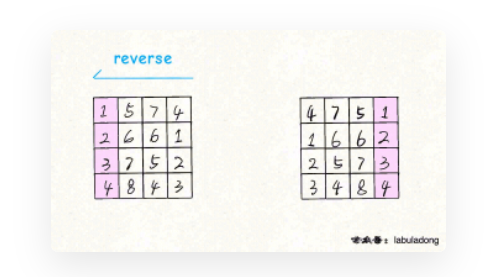 reverse
1 5 7 4
2 6 6 1
3 7 5 2
4 8 4 3
4 7 5 1
1 6 6 2
2 5 7 3
3 4 8 4
labuladong